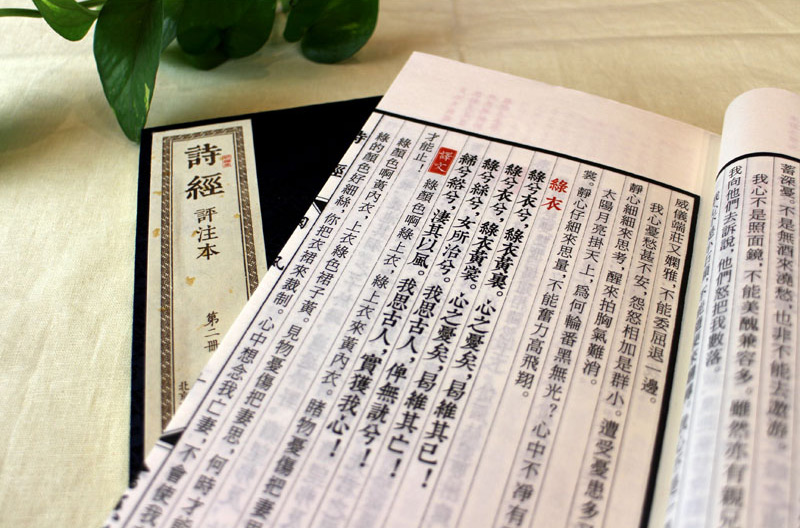 蓄深憂。不是無酒來澆愁,也非不能去遨游。
我心不是照面鏡,不能美醜兼容多。雖然亦有親
我向他們去訴說,他們怒把我數落。
威儀端莊又嫻雅,不能委屈退一邊。
我心憂愁甚不安,怨怒相加是群小。遭受憂患多
靜心細細來思考,醒來拍胸氣難消。
太陽月亮掛天上,爲何輪番黑無光?心中不淨有
裳。靜心仔細來思量,不能奮力高飛翔。
綠衣
綠兮衣兮,綠衣黃裏。心之憂矣,曷維其已!
綠兮衣兮,綠衣黃裳。心之憂矣,曷維其亡!
綠兮絲兮,女所治兮。我思古人,俾無訧兮!
絺兮綌兮,淒其以風。我思古人,實獲我心!
譯文
綠顏色啊綠上衣,綠上衣來黃內衣。睹物憂傷把妻
才能止!
綠顏色啊黃內衣,上衣綠色裙子黃。見物憂傷把妻思,何時才
綠的顏色好細絲,你把衣裙來裁制。心中想念我亡妻,不會使我
詩經
詩經
評注本
第二冊
北京